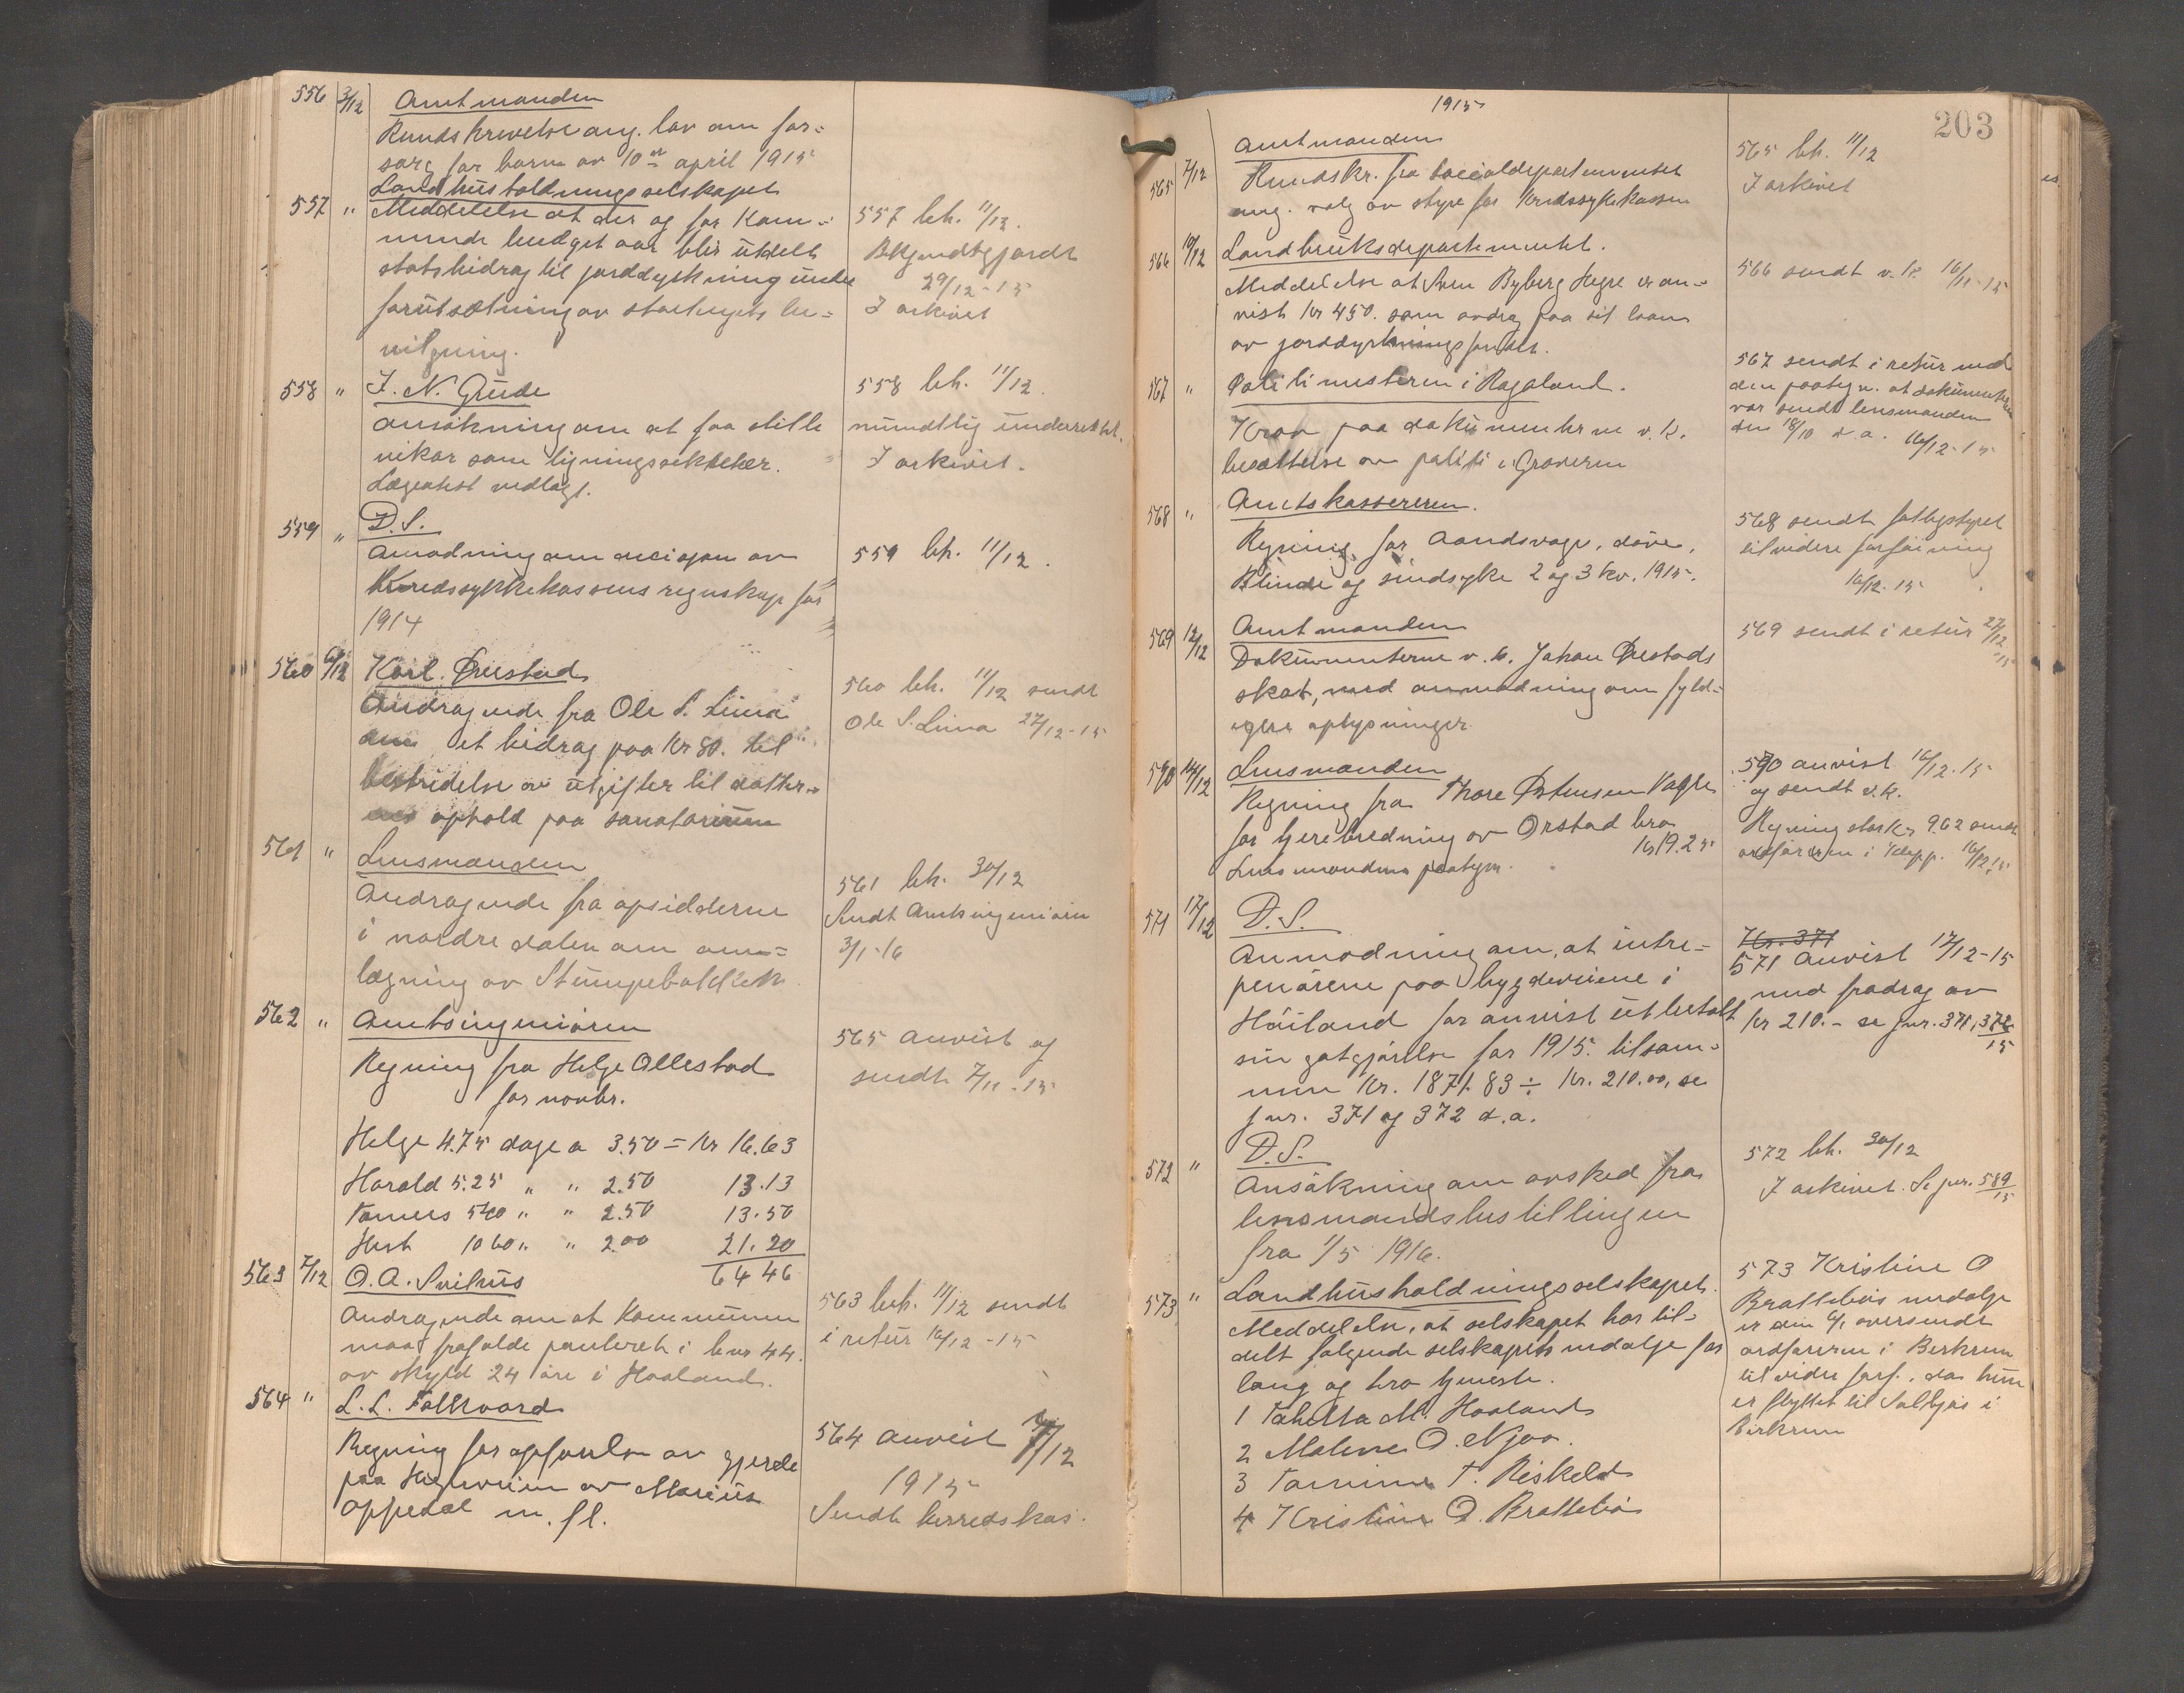 556 3/12 Amtmanden
Rundskrivelse ang. lov om for-
sorg for barn av 10de april 1915
Landhusholdningsselskapet
557 " Meddelelse at der og for kom-
mende budget aar blir utdelt
statsbidrag til jorddyrkning under
forutsætning av stortingets be-
vilgning.
557 beh. 11/12.
Bekjendtgjordt
29/12-15
I arkivet
558 " I. N. Grude
Ansökning om at faa stille
vikar som ligningssekretær.
Lægeatest vedlagt.
558 beh. 11/12.
mundtlig underrettet.
I arkivet.
559 " D.S.
Anmodning om decisjon av
kredssykekassens regnskap for
1914
559 beh. 11/12.
560 6/12 Karl Örestad
Andragende fra Ole S. Lima
om et bidrag paa kr 80. til
bestridelse av utgifter til datter-
ens ophold paa sanatorium
560 beh. 11/12 sendt
Ole S. Lima 27/12-15
561 " Lensmanden
Andragende fra opsidderne
i nordre dalen om om-
lægning av Stumpebakken
561 beh. 30/12
Sendt Amtsingeniören
3/1-16
562 " Amtsingeniören
Regning fra Helge Ollestad
for novbr.
Helge 4.75 dage a 3.50 = kr 16.63
Harald 5.25 " " 2.50 13.13
Tønnes 540 " " 2.50 13.50
Hest 1060 " " 2.00 21.20
64 46
565 anvist og
sendt 7/12-15
563 7/12 O. A. Svihus
Andragende om at kommunen
maa frafalde panteret i bnr 44.
av skyld 24 öre i Haaland.
563 beh. 11/12 sendt
i retur 16/12-15
564 " L. L. Folkvord
Regning for opförelse av gjerde
paa Högeveien av Marius
Oppedal m. fl.
564 anvist 7/12
1915
Sendt herredskas.
1915
203
Amtmanden
565 7/12 Rundskr. fra Socialdepartementet
ang. valg av styre for kredssykekassen
565 beh. 11/12
I arkivet
566 10/12 Landbruksdepartementet.
Meddelelse at Sven Byberg Hegre er an-
vist kr 450. som avdrag paa sit laan
av jorddyrkningsfondet.
566 sendt v.k. 16/12-15
567 " Politimesteren i Rogaland.
Krav paa dokumenterne v. k.
besættelse av politi i Graveren
567 sendt i retur med
den paategn. at dokumenterne
var sendt lensmanden
den 18/10 d.a. 16/12-15
568 " Amtskassereren.
Regning for Aandsvage, döve,
Blinde og sindsyke 2 og 3 kv. 1915.
568 sendt fattigstyret
til videre forföining
16/12-15
569 12/12 Amtmanden
Dokumenterne v. k. Johan Örestads
skat, med anmodning om fyld-
igere oplysninger
569 sendt i retur 27/12
15
590 14/12 Lensmanden
Regning fra Thore Østensen Vagle
for hjerebredning av Orstad bro
Lensmandens paategn. kr 19.25
590 anvist 16/12-15
og sendt v.k.
Regning stor kr 9.62 sendt
ordføreren i Klepp. 16/12.15
571 17/12 D.S.
Anmodning om, at intre-
penörene paa bygdeveiene i
Höiland faar anvist utbetalt
sin godtgjörelse for 1915. tilsam-
men kr. 1871.83 ÷ kr. 210.00, se
jnr. 371 og 372 d.a.
Kr. 371
571 anvist 17/12-15
med fradrag av
kr 210.- se jnr. 371, 372
15
572 " D.S.
Ansökning om avsked fra
lensmandsbestillingen
fra 1/5 1916.
572 beh. 30/12
I arkivet. Se jnr. 589
15
573 " Landhusholdningsselskapet.
Meddeler, at selskapet har til-
delt følgende selskapets medalje for
lang og tro tjeneste.
1 Tabitta M. Haaland
2 Malene O. Njaa.
3 Tomine T. Riskeld
4 Kristine O. Brattebö
573 Kristine O
Brattebös medalje
er den 6/1 oversendt
ordføreren i Birkrem
til videre forf., da hun
er flyttet til Salthjös i
Birkrem